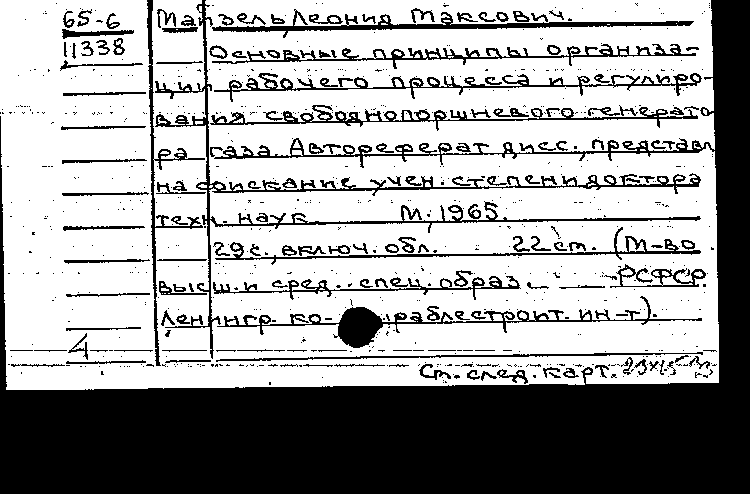 65-6 Майзель, Леонид Максович.
11338 Основные принципы организа-
ции рабочего процесса и регулиро-
вания свободнопоршневого генерато
ра газа. Автореферат дисс., представл
на соискание учен. степени доктора
техн. наук М., 1965.
29 с., включ. обл. 22 см. (М-во
высш. и сред. спец. образ. РСФСР.
Ленингр. ко-раблестроит. ин-т).
4
Ст. след. карт.